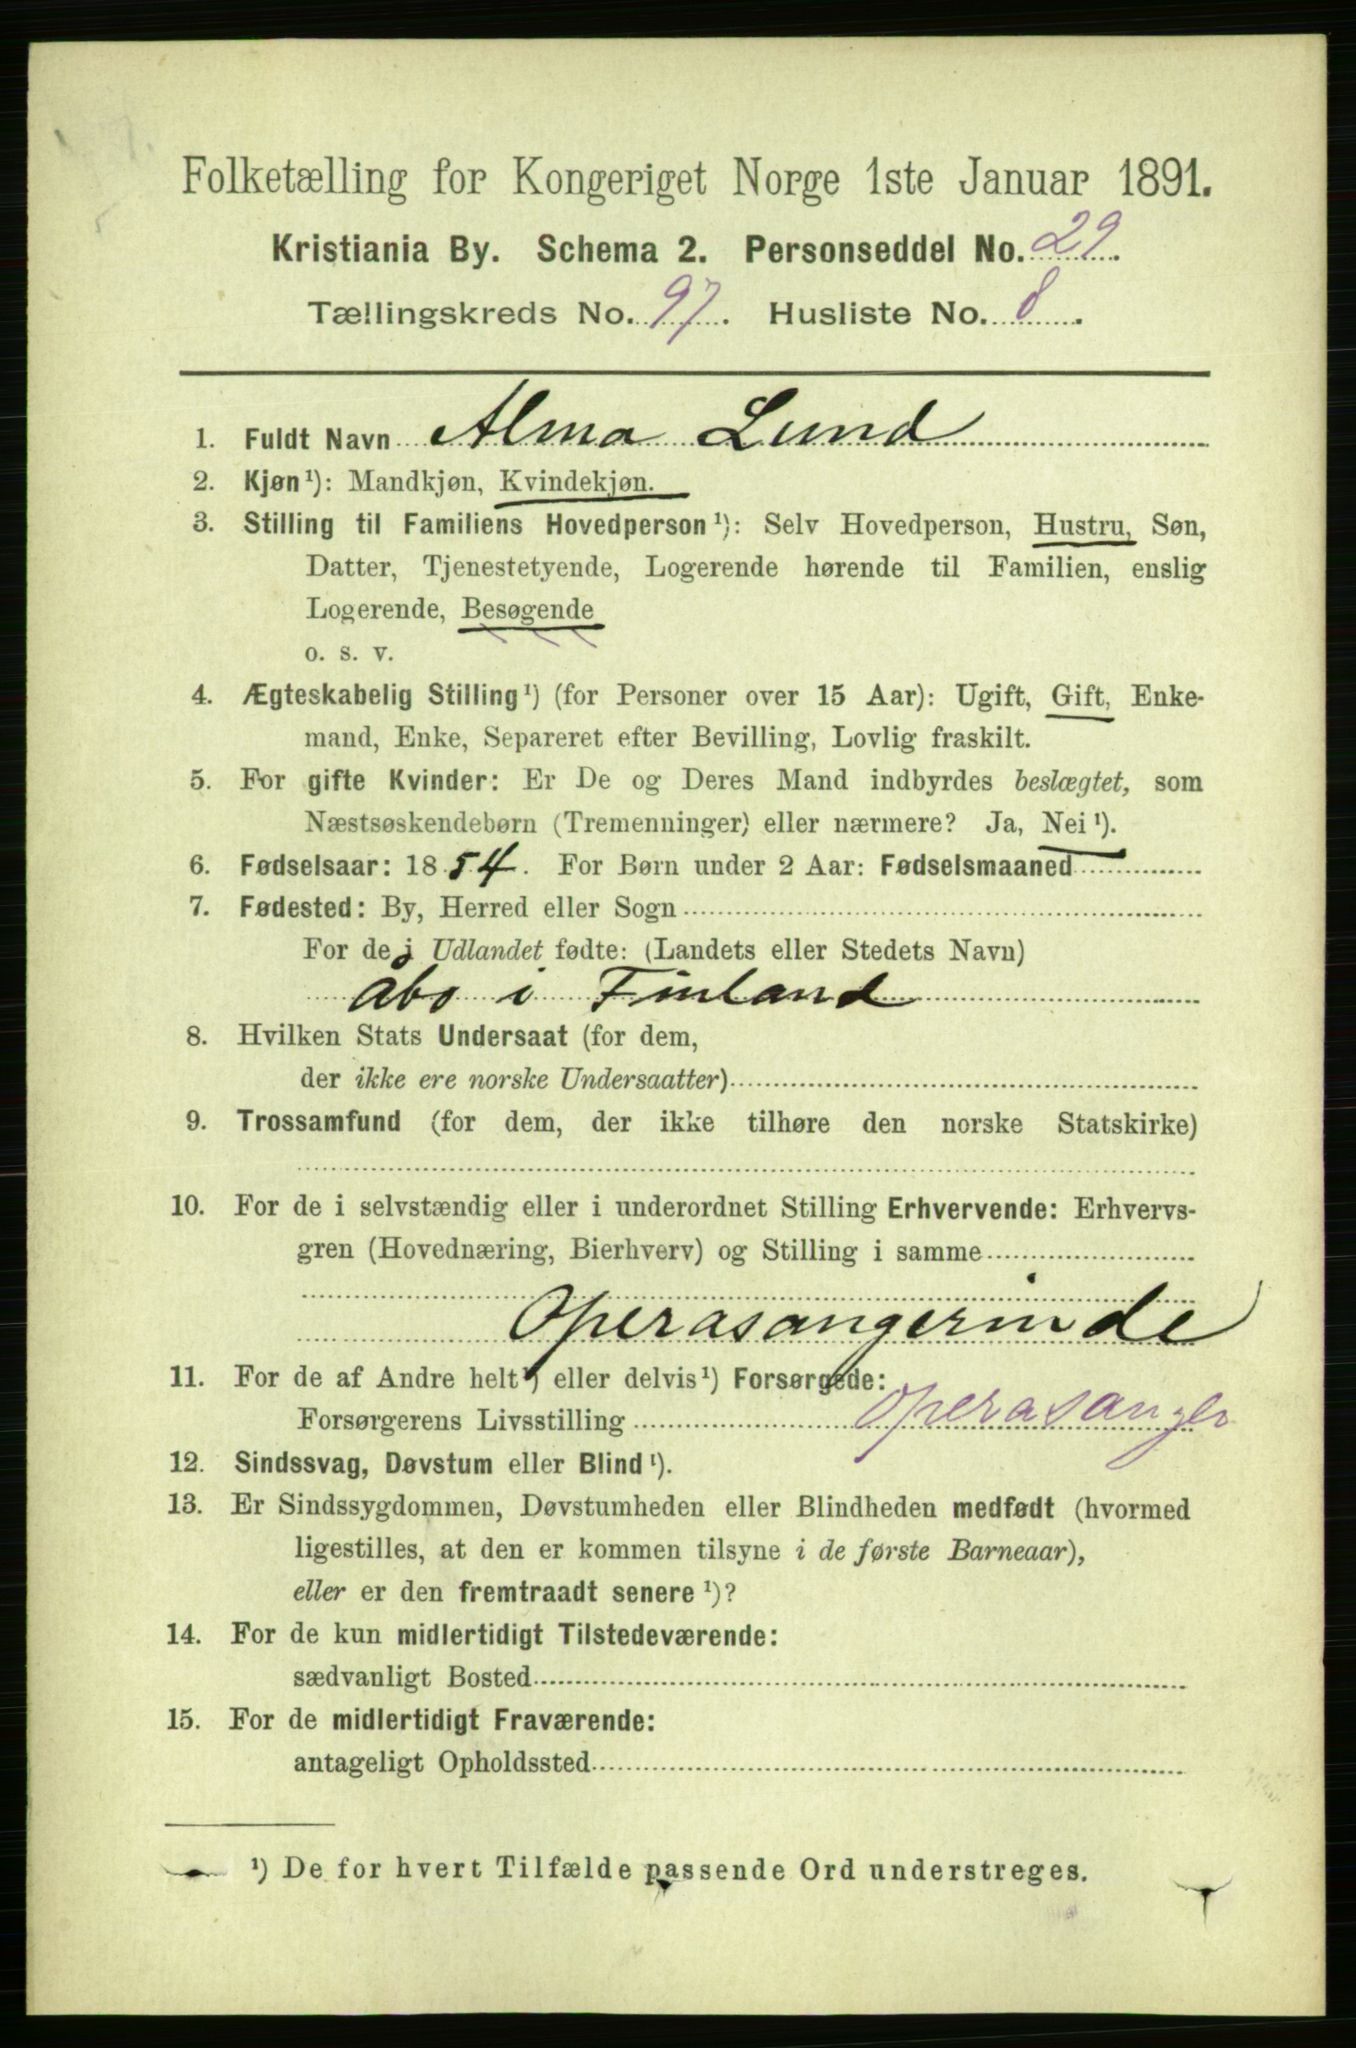 Folketælling for Kongeriget Norge 1ste Januar 1891.
Kristiania By. Schema 2. Personseddel No. 29.
Tællingskreds No. 97. Husliste No. 8.
1. Fuldt Navn Alma Lund
2. Kjøn¹): Mandkjøn, Kvindekjøn.
3. Stilling til Familiens Hovedperson¹): Selv Hovedperson, Hustru, Søn,
Datter, Tjenestetyende, Logerende hørende til Familien, enslig
Logerende, Besøgende
o. s. v.
4. Ægteskabelig Stilling¹) (for Personer over 15 Aar): Ugift, Gift, Enke-
mand, Enke, Separeret efter Bevilling, Lovlig fraskilt.
5. For gifte Kvinder: Er De og Deres Mand indbyrdes beslægtet, som
Næstsøskendebørn (Tremenninger) eller nærmere? Ja, Nei¹).
6. Fødselsaar: 1854. For Børn under 2 Aar: Fødselsmaaned
7. Fødested: By, Herred eller Sogn
For de i Udlandet fødte: (Landets eller Stedets Navn)
Åbo i Finland
8. Hvilken Stats Undersaat (for dem,
der ikke ere norske Undersaatter)
9. Trossamfund (for dem, der ikke tilhøre den norske Statskirke)
10. For de i selvstændig eller i underordnet Stilling Erhvervende: Erhvervs-
gren (Hovednæring, Bierhverv) og Stilling i samme
Operasangerinde
11. For de af Andre helt¹) eller delvis¹) Forsørgede:
Forsørgerens Livsstilling Operasanger
12. Sindssvag, Døvstum eller Blind¹).
13. Er Sindssygdommen, Døvstumheden eller Blindheden medfødt (hvormed
ligestilles, at den er kommen tilsyne i de første Barneaar),
eller er den fremtraadt senere¹)?
14. For de kun midlertidigt Tilstedeværende:
sædvanligt Bosted
15. For de midlertidigt Fraværende:
antageligt Opholdssted
¹) De for hvert Tilfælde passende Ord understreges.